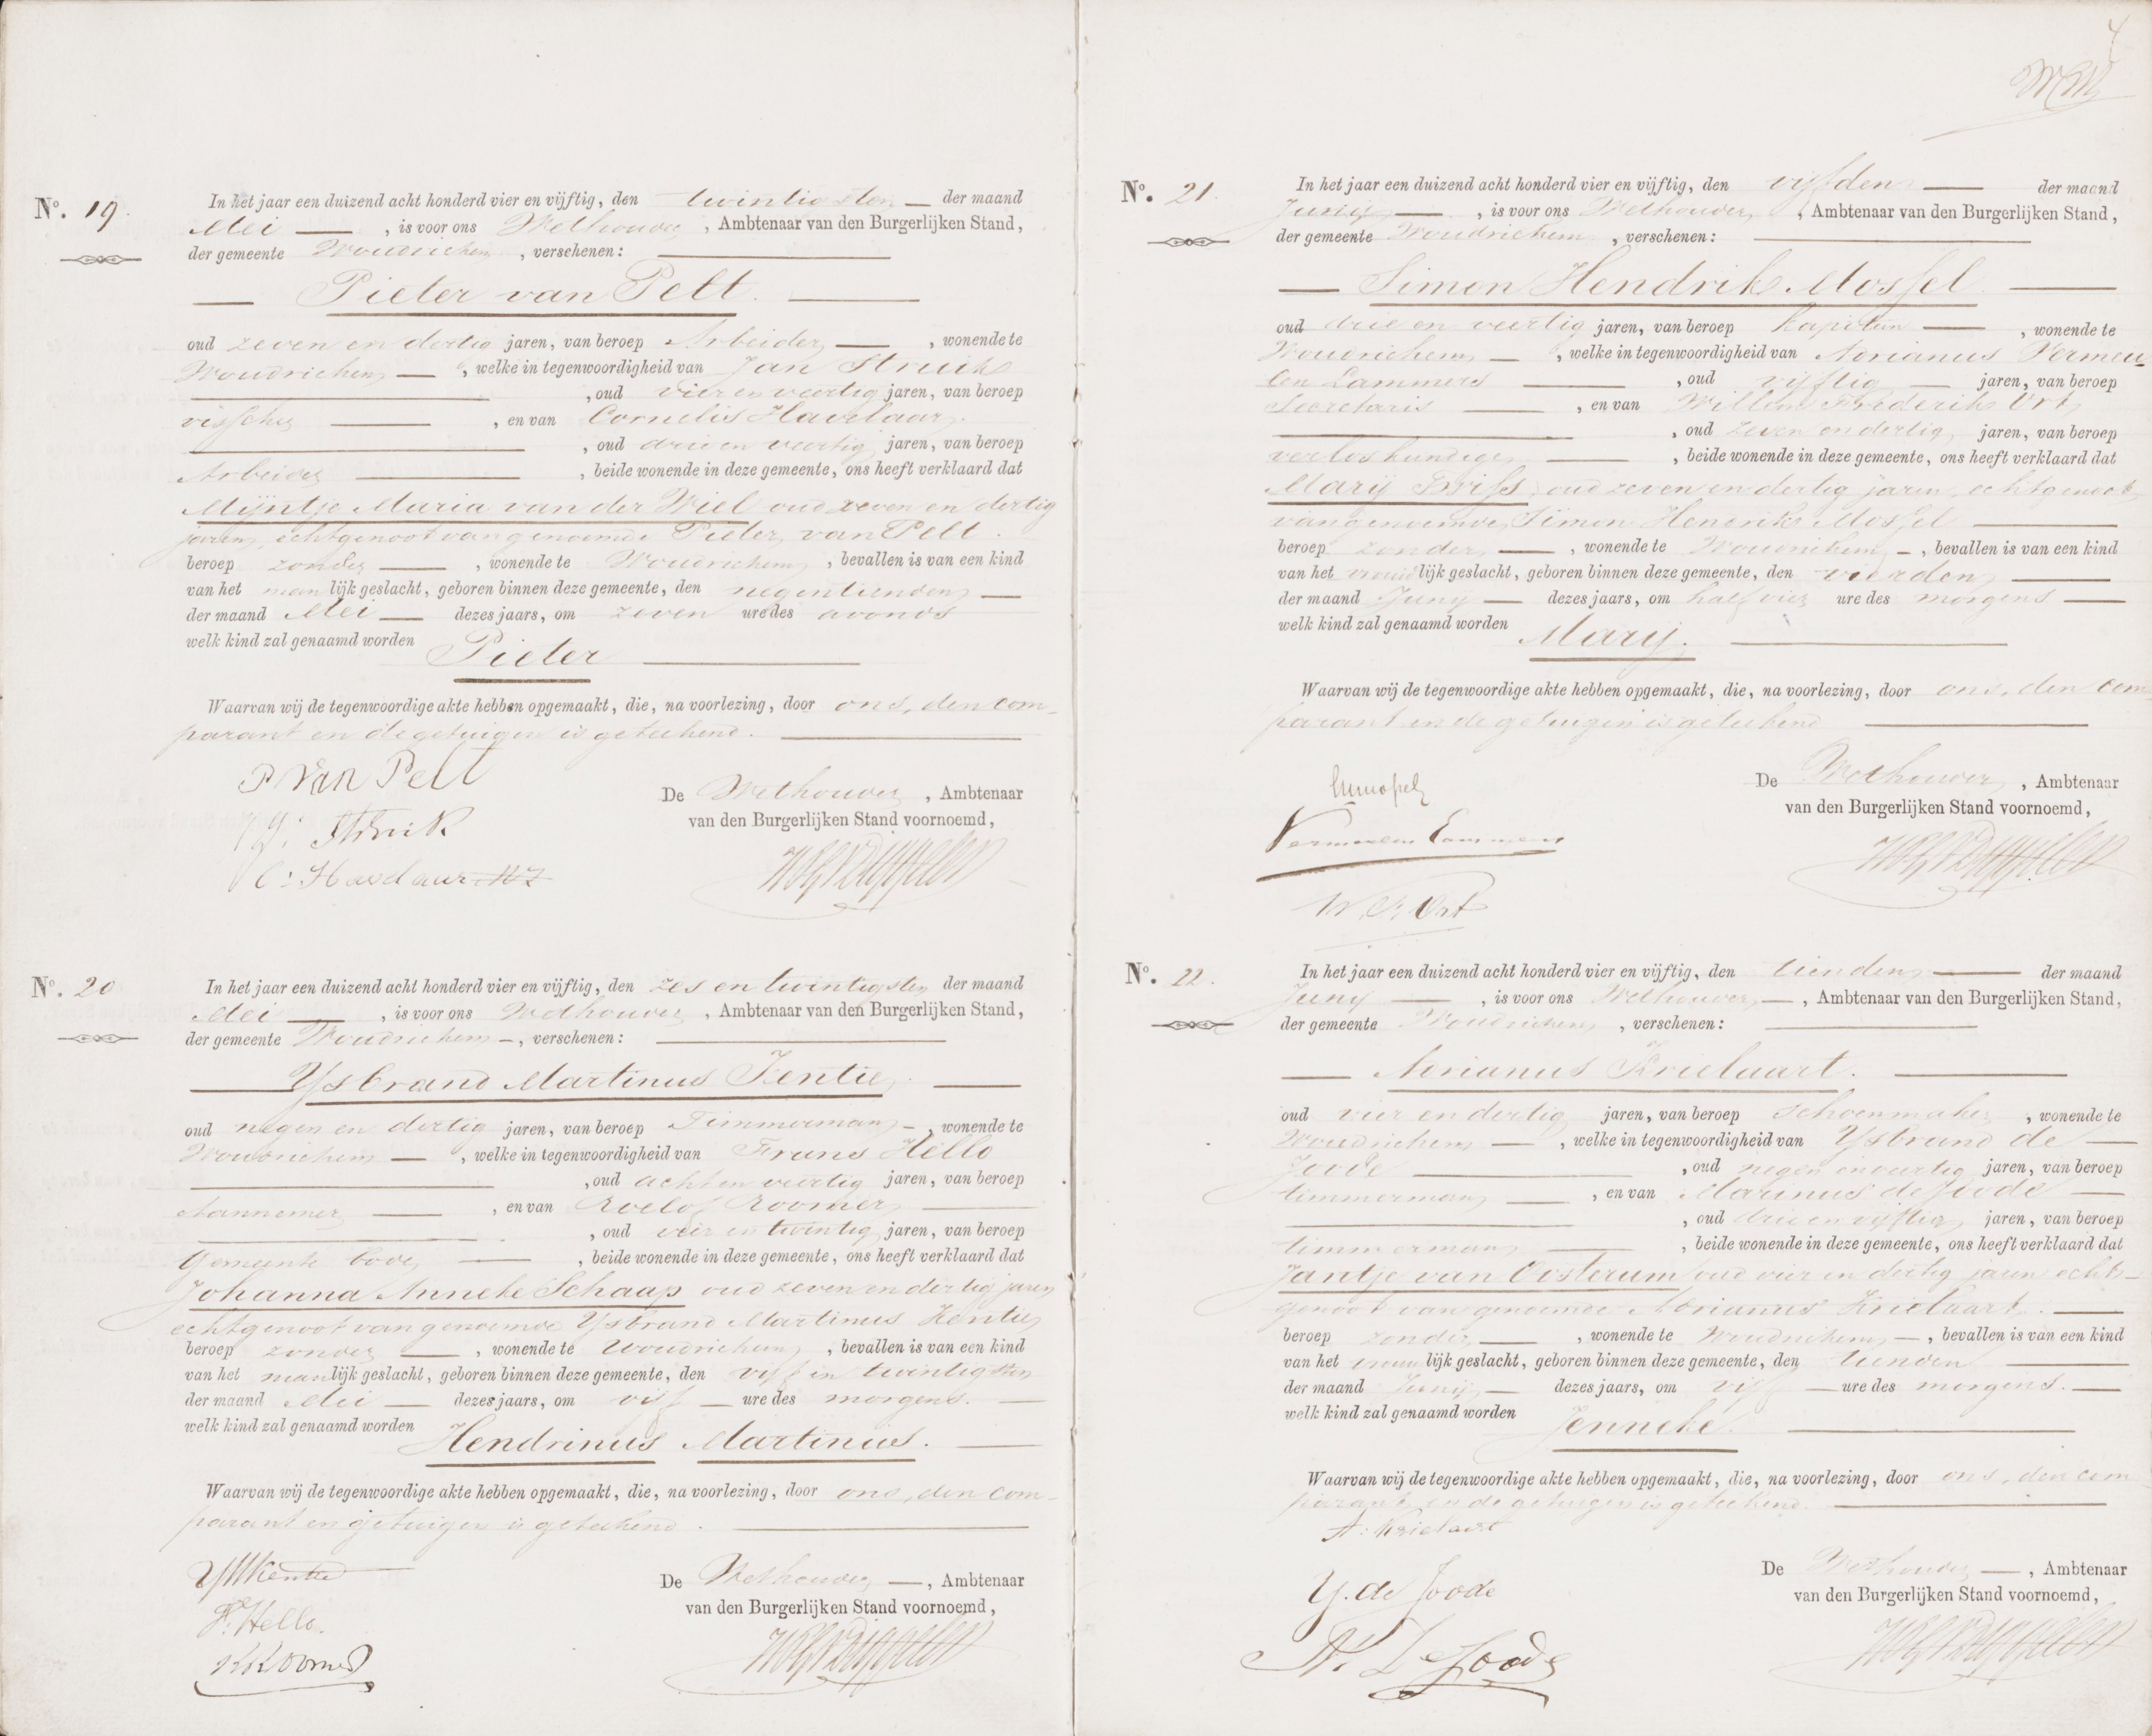 No. 19.
In het jaar een duizend acht honderd vier en vijftig, den twintigsten der maand
Mei , is voor ons Wethouder , Ambtenaar van den Burgerlijken Stand,
der gemeente Woudrichem , verschenen:
Pieter van Pelt.
oud zeven en dertig jaren, van beroep Arbeider , wonende te
Woudrichem , welke in tegenwoordigheid van Jan Struik
, oud vier en veertig jaren, van beroep
visscher , en van Cornelis Havelaar
, oud drie en veertig jaren, van beroep
Arbeider , beide wonende in deze gemeente, ons heeft verklaard dat
Mijntje Maria van der Wiel oud zeven en dertig
jaren, echtgenoot van genoemde Pieter van Pelt.
beroep zonder , wonende te Woudrichem , bevallen is van een kind
van het manlijk geslacht, geboren binnen deze gemeente, den negentienden
der maand Mei dezes jaars, om zeven ure des avonds
welk kind zal genaamd worden Pieter
Waarvan wij de tegenwoordige akte hebben opgemaakt, die, na voorlezing, door ons, den com-
parant en de getuigen is geteekend.
P van Pelt
J: Struik
C: Havelaar
De Wethouder , Ambtenaar
van den Burgerlijken Stand voornoemd,
No. 20
In het jaar een duizend acht honderd vier en vijftig, den zes en twintigsten der maand
Mei , is voor ons Wethouder , Ambtenaar van den Burgerlijken Stand,
der gemeente Woudrichem , verschenen:
Ysbrand Martinus Kentie.
oud negen en dertig jaren, van beroep Timmerman , wonende te
Woudrichem , welke in tegenwoordigheid van Frans Hello
, oud acht en veertig jaren, van beroep
Aannemer , en van Roelof Roomer
, oud vier en twintig jaren, van beroep
Gemeente bode , beide wonende in deze gemeente, ons heeft verklaard dat
Johanna Anneke Schaap oud zeven en dertig jaren
echtgenoot van genoemde Ysbrand Martinus Kentie
beroep zonder , wonende te Woudrichem , bevallen is van een kind
van het manlijk geslacht, geboren binnen deze gemeente, den vijf en twintigsten
der maand Mei dezes jaars, om vijf ure des morgens.
welk kind zal genaamd worden Hendrinus Martinus.
Waarvan wij de tegenwoordige akte hebben opgemaakt, die, na voorlezing, door ons, den com-
parant en getuigen is geteekend.
YMKentie
F: Hello.
R Roomer
De Wethouder , Ambtenaar
van den Burgerlijken Stand voornoemd,
4
No. 21.
In het jaar een duizend acht honderd vier en vijftig, den vijfden der maand
Junij , is voor ons Wethouder , Ambtenaar van den Burgerlijken Stand,
der gemeente Woudrichem , verschenen:
Simon Hendrik Mossel
oud drie en veertig jaren, van beroep kapitein , wonende te
Woudrichem , welke in tegenwoordigheid van Adrianus Vermeu-
len Lammers , oud vijftig jaren, van beroep
Secretaris , en van Willem Frederik Ort
, oud zeven en dertig jaren, van beroep
verloskundige , beide wonende in deze gemeente, ons heeft verklaard dat
Marij oud zeven en dertig jaren, echtgenoot
van genoemde Simon Hendrik Mossel
beroep zonder , wonende te Woudrichem , bevallen is van een kind
van het vrouwlijk geslacht, geboren binnen deze gemeente, den vierden
der maand Junij dezes jaars, om half vier ure des morgens
welk kind zal genaamd worden Marij.
Waarvan wij de tegenwoordige akte hebben opgemaakt, die, na voorlezing, door ons, den com
parant en de getuigen is geteekend
Vermeulen Lammers
W. F. Ort
De Wethouder , Ambtenaar
van den Burgerlijken Stand voornoemd,
No. 22.
In het jaar een duizend acht honderd vier en vijftig, den tienden der maand
Junij , is voor ons Wethouder , Ambtenaar van den Burgerlijken Stand,
der gemeente Woudrichem , verschenen:
Adrianus Krielaart.
oud vier en dertig jaren, van beroep Schoenmaker , wonende te
Woudrichem , welke in tegenwoordigheid van Ysbrand de
Joode , oud negen en veertig jaren, van beroep
timmerman , en van Marinus de Joode
, oud drie en vijftig jaren, van beroep
timmerman , beide wonende in deze gemeente, ons heeft verklaard dat
Jantje van Oosterum oud vier en dertig jaren echt-
genoot van genoemde Adrianus Krielaart.
beroep zonder , wonende te Woudrichem , bevallen is van een kind
van het vrouwlijk geslacht, geboren binnen deze gemeente, den tienden
der maand Junij dezes jaars, om vijf ure des morgens.
welk kind zal genaamd worden Jenneke.
Waarvan wij de tegenwoordige akte hebben opgemaakt, die, na voorlezing, door ons, den com
parant en de getuigen is geteekend.
A: Krielaart
Y. de Joode
M. De Joode
De Wethouder , Ambtenaar
van den Burgerlijken Stand voornoemd,